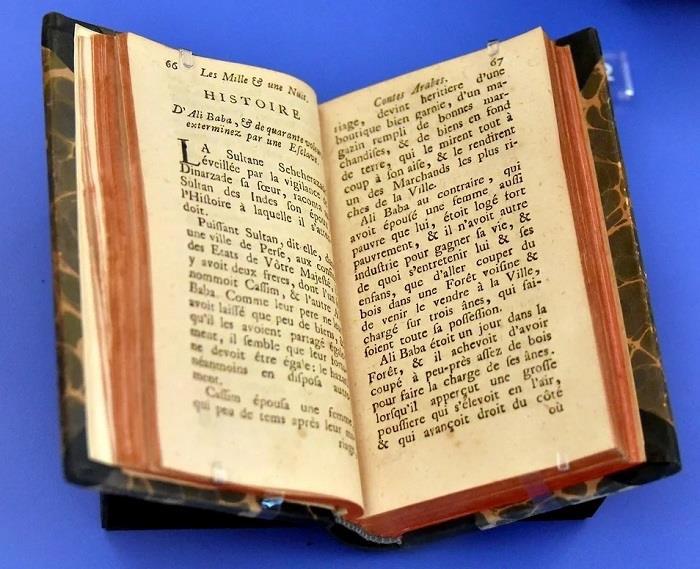 66
Les Mille & une Nuit,
HISTOIRE
D'Ali Baba, & de quarante
exterminez par une Esclave.
LA Sultane Scheherazade
éveillée par la vigilance de
Dinarzade ſa ſœur, raconta
Sultan des Indes ſon époux
l'Hiſtoire à laquelle il s'atten
doit.
Puiſſant Sultan, dit-elle, dans
une ville de Perſe, aux confins
des Etats de Vôtre Majeſté,
y avoit deux freres, dont l'un
nommoit Caſſim, & l'autre
Baba. Comme leur pere ne
avoit laiſſé que peu de biens,
qu'il les avoient partagé
ment, il ſemble que leur
ne devoit être égale: le
néanmoins en diſpoſa
ment.
Caſſim épouſa une femme,
qui peu de tems après leur
riage
67
Contes Arabes.
riage, devint heritiere d'une
boutique bien garnie, d'un ma-
gazin rempli de bonnes mar-
chandiſes, & de biens en fond
de terre, qui le mirent tout à
coup à ſon aiſe, & le rendirent
un des Marchands les plus ri-
ches de la Ville.
Ali Baba au contraire, qui
avoit épouſé une femme auſſi
pauvre que lui, étoit logé fort
pauvrement, & il n'avoit autre
induſtrie pour gagner ſa vie, &
de quoi s'entretenir lui & ſes
enfans, que d'aller couper du
bois dans une Forêt voiſine &
de venir le vendre à la Ville,
chargé ſur trois ânes, qui fai-
ſoient toute ſa poſſeſſion.
Ali Baba étoit un jour dans la
Forêt, & il achevoit d'avoir
coupé à peu-près aſſez de bois
pour faire la charge de ſes ânes.
lorſqu'il apperçut une groſſe
pouſſiere qui s'élevoit en l'air,
& qui avançoit droit du côté
où